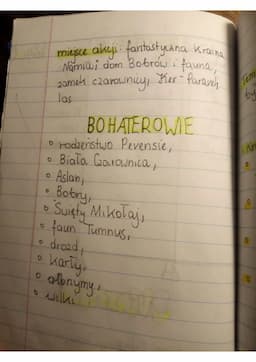 miejsce akcji: fantastyczna kraina
Narnia; dom Bobrów i fauna,
zamek czarownicy; Ker-Paravel,
las
BOHATEROWIE
rodzeństwo Pevensie,
Biała Czarownica,
Aslan,
Bobry,
Święty Mikołaj,
faun Tumnus,
drozd,
karły,
olbrzymy,
wilki